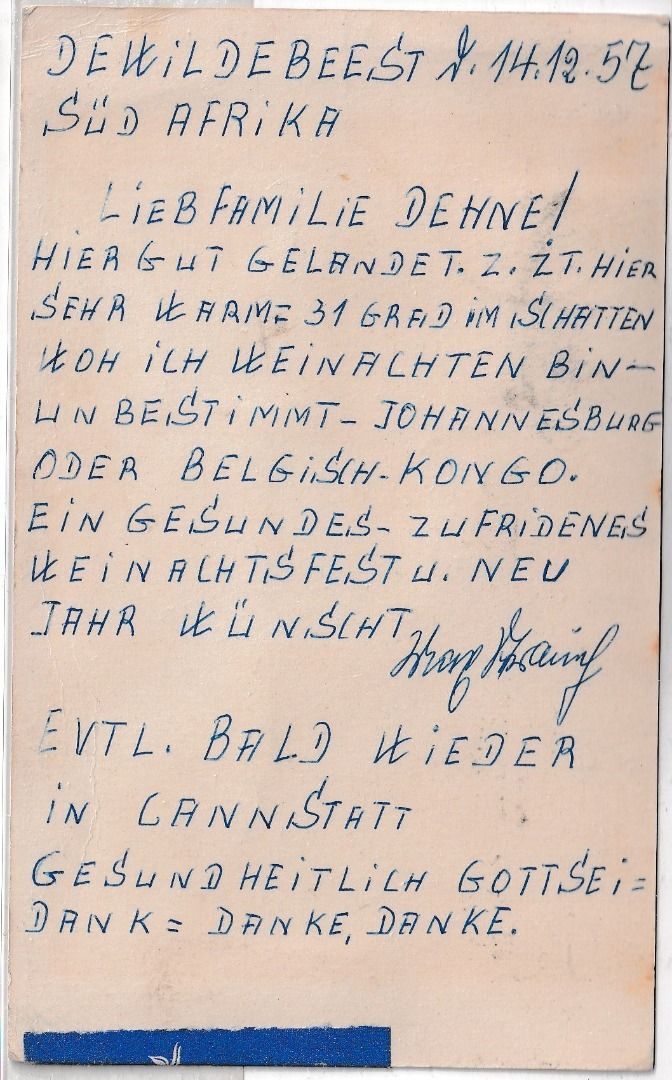 DEWILDEBEEST d. 14.12.57
SÜD AFRIKA
LIEB FAMILIE DEHNE!
HIER GUT GELANDET. Z. ZT. HIER
SEHR WARM= 31 GRAD IM SCHATTEN
WOH ICH WEINACHTEN BIN-
UNBESTIMMT- JOHANNESBURG
ODER BELGISCH-KONGO.
EIN GESUNDES- ZUFRIDENES
WEINACHTSFEST U. NEU
JAHR WÜNSCHT
EVTL. BALD WIEDER
IN CANNSTATT
GESUNDHEITLICH GOTTSEI=
DANK= DANKE, DANKE.